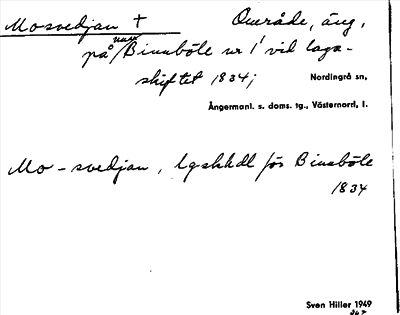 Mosvedjan † Område, äng,
på Binnböle nr 1 vid laga-
skiftet 1834;
Nordingrå sn,
Ångermanl. s. doms. tg., Västernorrl. l.
Mo-svedjan, lgskhdl för Binnböle
1834
Sven Hiller 1949